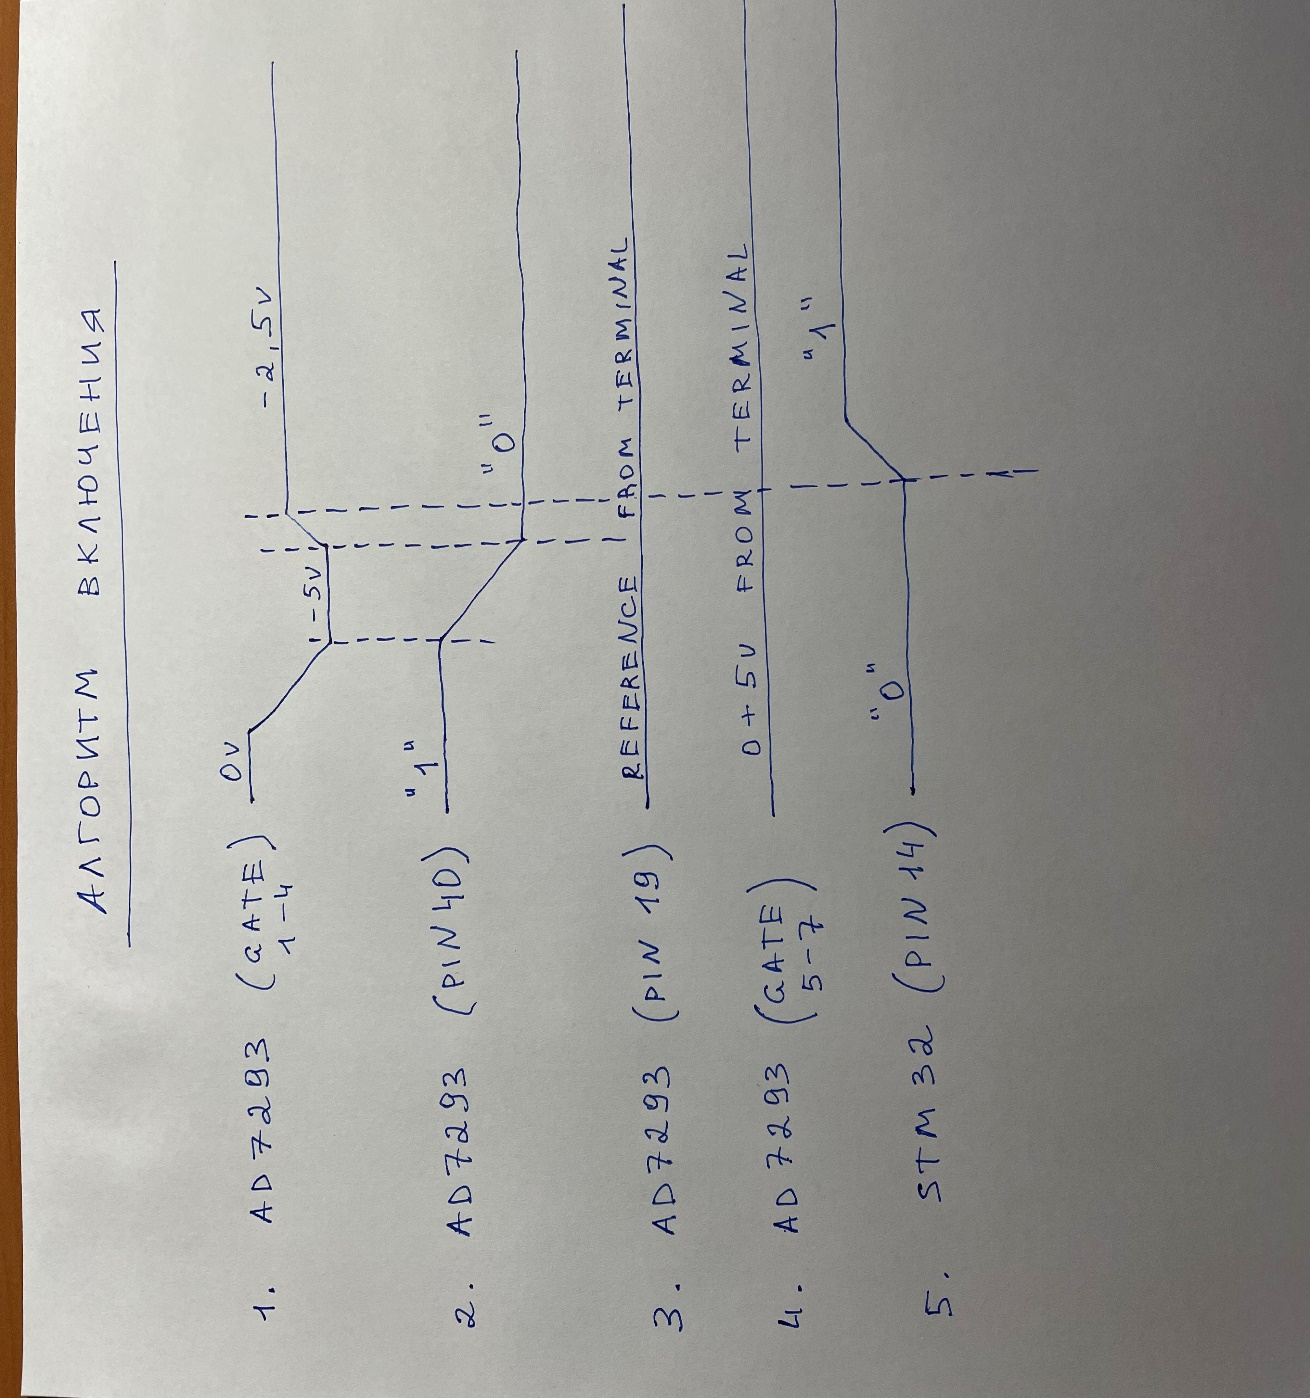 АЛГОРИТМ ВКЛЮЧЕНИЯ
1. AD7293 (GATE 1-4) 0V -5V -2,5V
2. AD7293 (PIN 40) "1" "0"
3. AD7293 (PIN 19) REFERENCE FROM TERMINAL
4. AD7293 (GATE 5-7) 0+5V FROM TERMINAL
5. STM32 (PIN 14) "0" "1"